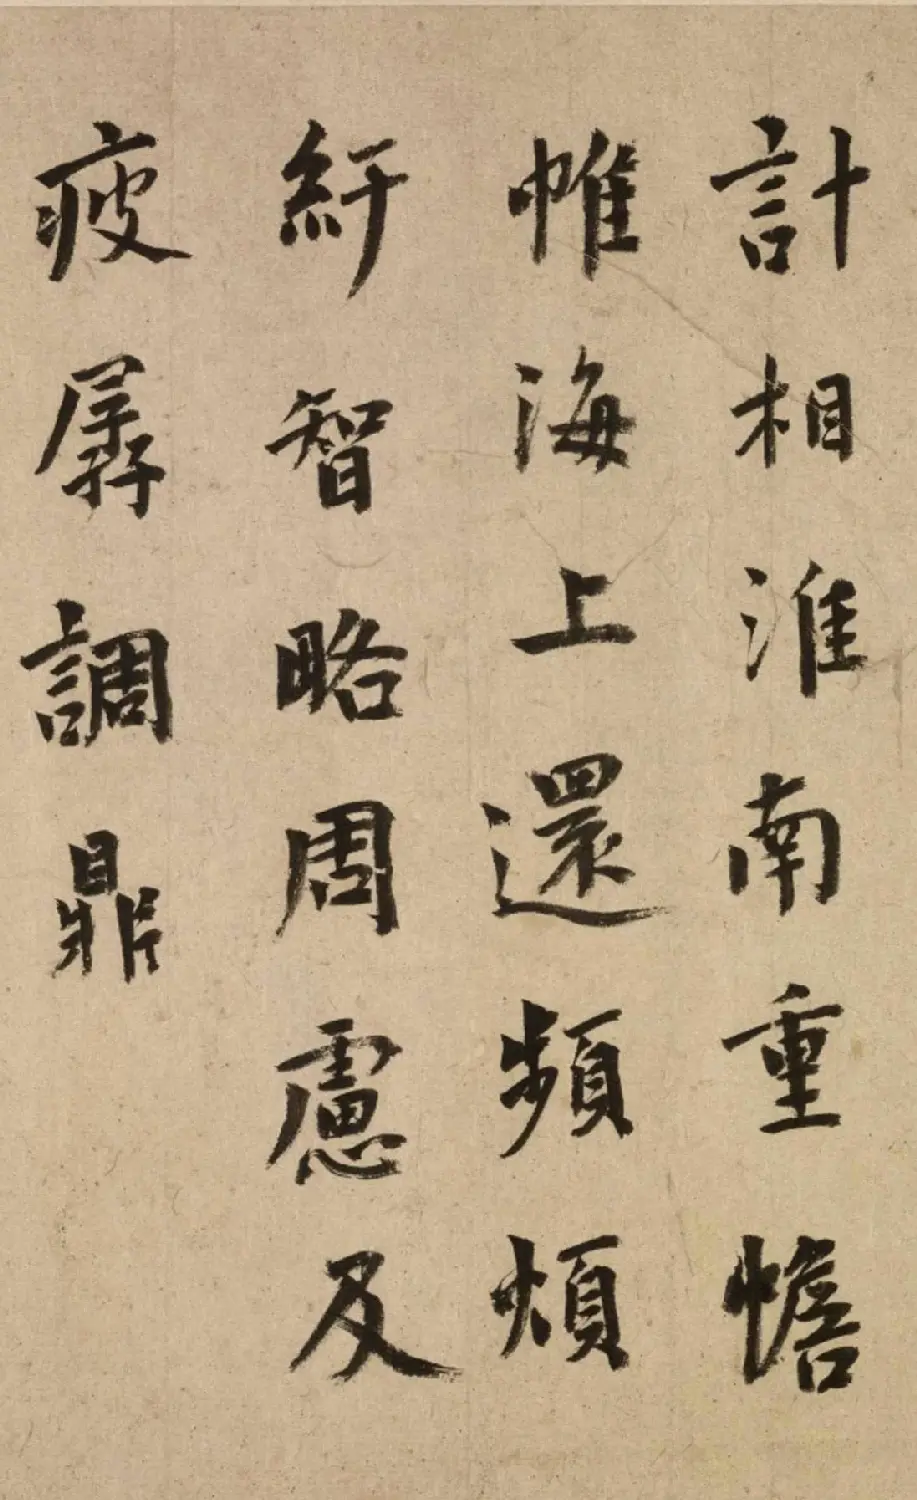 計相淮南重幨
帷海上還頻煩
紆智略周慮及
疲孱調鼎